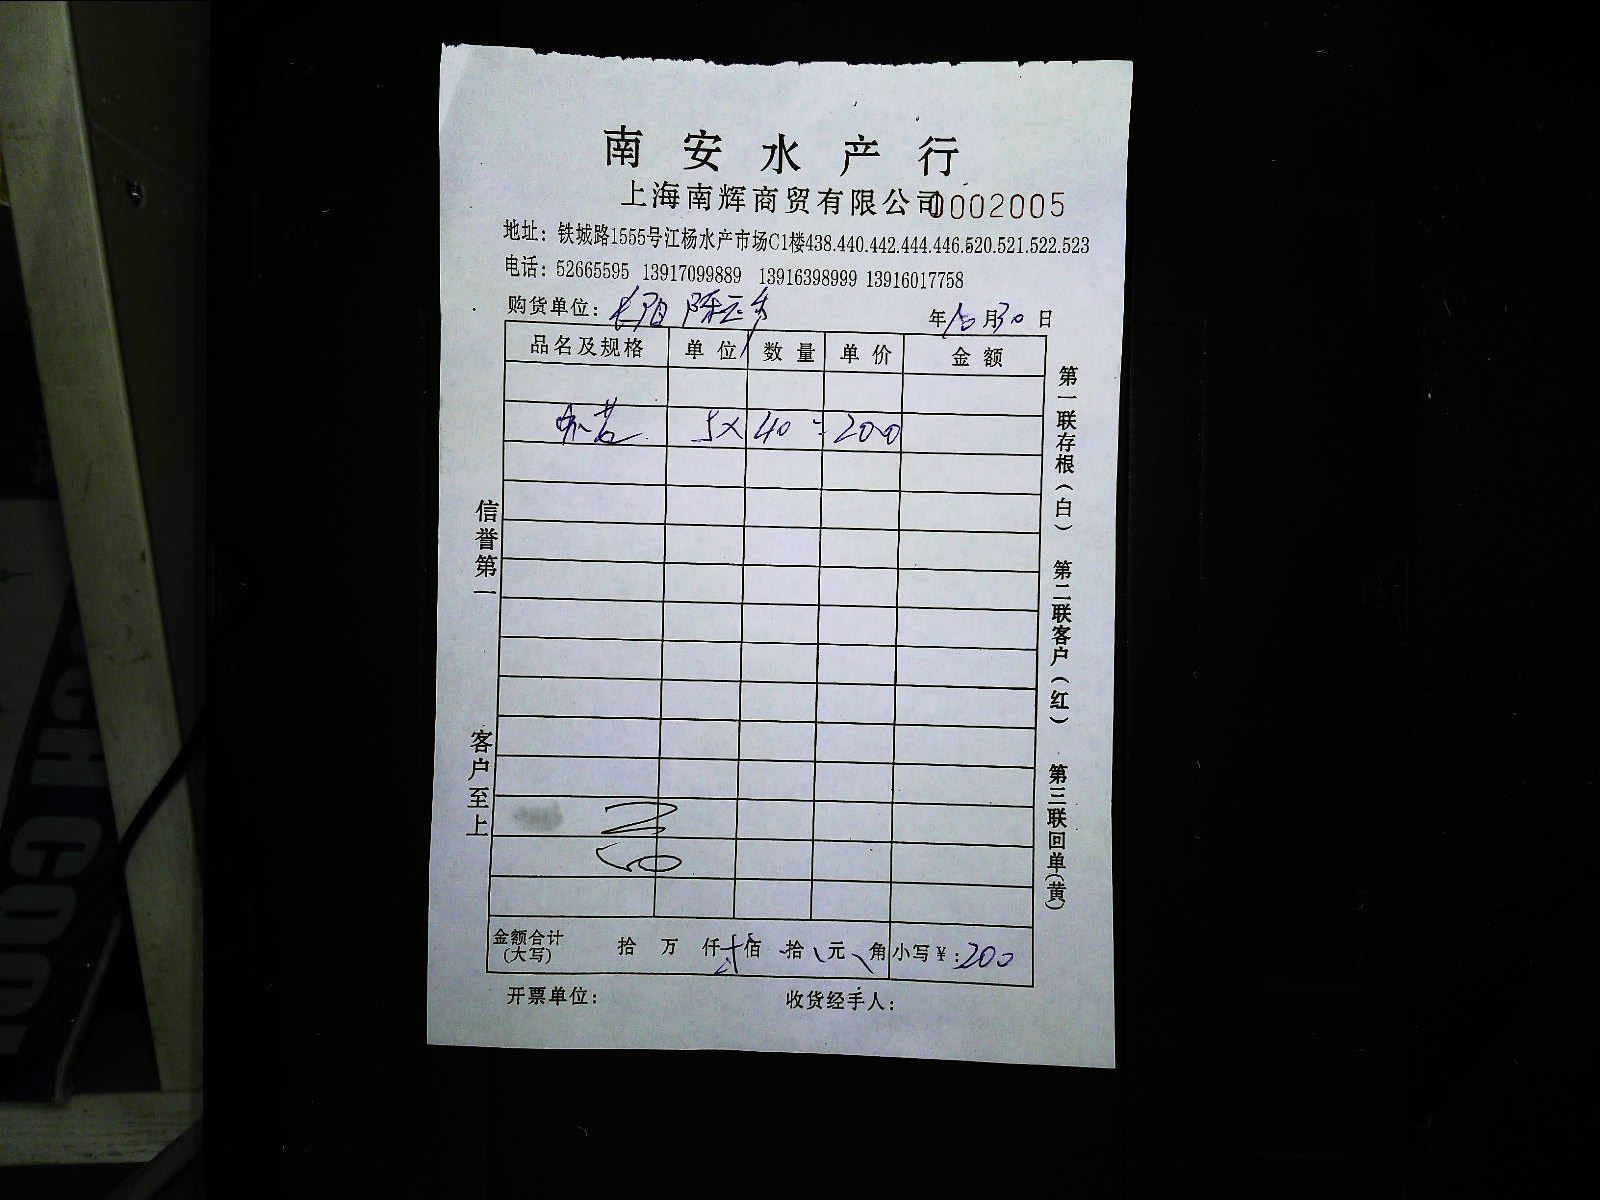 南安水产行
上海南辉商贸有限公司 0002005
地址：铁城路1555号江杨水产市场C1楼438.440.442.444.446.520.521.522.523
电话：52665595 13917099889 13916398999 13916017758
购货单位： 年 月30日
品名及规格 单位 数量 单价 金额
5× 40 = 200
信誉第一
客户至上
第一联存根（白） 第二联客户（红） 第三联回单（黄）
金额合计 拾 万 仟 佰 拾 元 角 小写￥：200
（大写）
开票单位： 收货经手人：